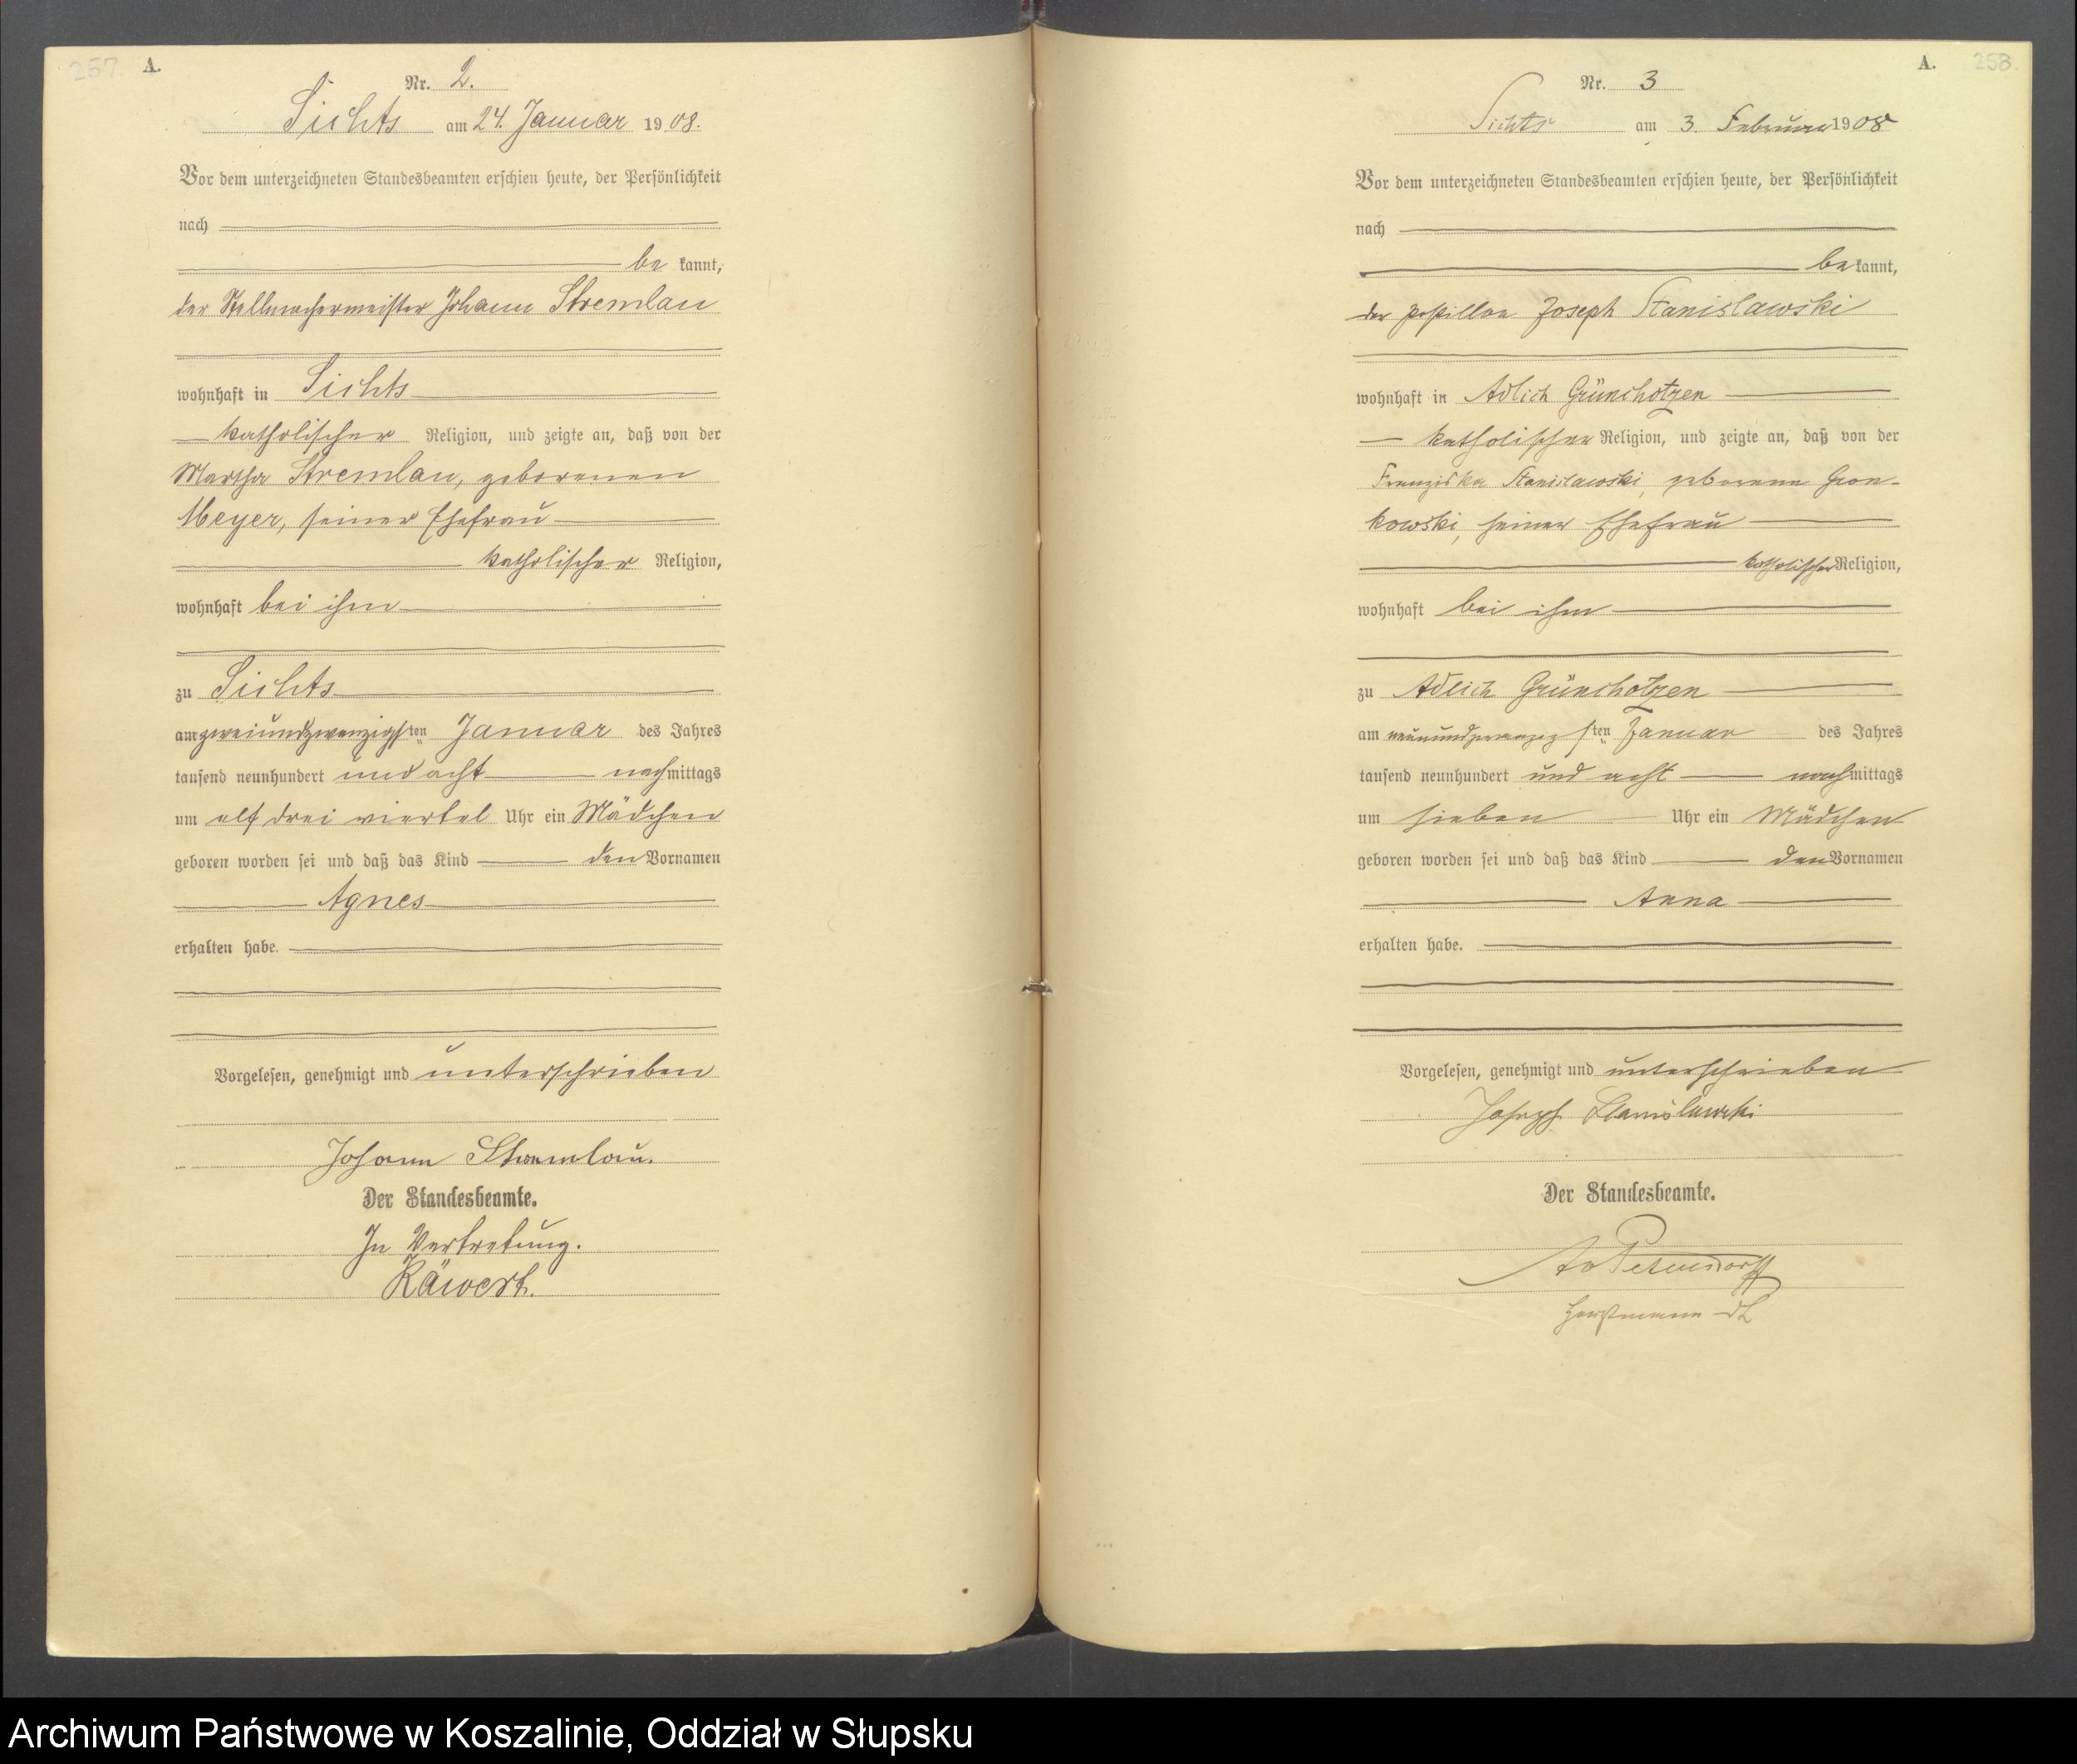 257.
A.
Nr. 2.
Sichts am 24. Januar 1908.
Vor dem unterzeichneten Standesbeamten erschien heute, der Persönlichkeit
nach
be kannt,
der Stellmachermeister Johann Stremlau
wohnhaft in Sichts
katholischer Religion, und zeigte an, daß von der
Martha Stremlau, geborenen
Meyer, seiner Ehefrau
katholischer Religion,
wohnhaft bei ihm
zu Sichts
am zweiundzwanzigsten Januar des Jahres
tausend neunhundert und acht nachmittags
um elf drei viertel Uhr ein Mädchen
geboren worden sei und daß das Kind den Vornamen
Agnes
erhalten habe.
Vorgelesen, genehmigt und unterschrieben
Johann Stremlau.
Der Standesbeamte.
In Vertretung.
Räwert.
A.
258.
Nr. 3
Sichts am 3. Februar 1908
Vor dem unterzeichneten Standesbeamten erschien heute, der Persönlichkeit
nach
bekannt,
der Postillon Joseph Stanislawski
wohnhaft in Adlich Grünchotzen
katholischer Religion, und zeigte an, daß von der
Franziska Stanislawski, geborene Gron-
kowski, seiner Ehefrau
katholischer Religion,
wohnhaft bei ihm
zu Adlich Grünchotzen
am neunundzwanzigsten Januar des Jahres
tausend neunhundert und acht nachmittags
um sieben Uhr ein Mädchen
geboren worden sei und daß das Kind den Vornamen
Anna
erhalten habe.
Vorgelesen, genehmigt und unterschrieben
Joseph Stanislawski
Der Standesbeamte.
Archiwum Państwowe w Koszalinie, Oddział w Słupsku